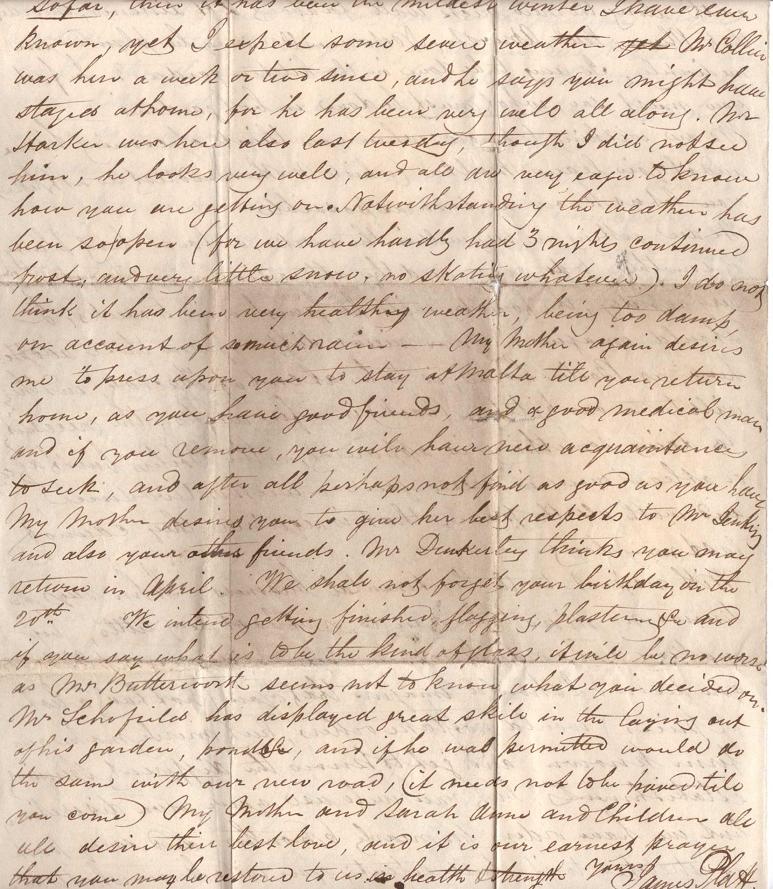 sofar, then it has been the mildest winter I have ever
known, yet I expect some severe weather yet Mr Collin
was here a week or two since, and he says you might have
stayed at home, for he has been very well all along. Mr
Harker was here also last tuesday, though I did not see
him, he looks very well, and all are very eager to know
how you are getting on. Notwithstanding the weather has
been so open (for we have hardly had 3 nights continued
frost, and very little snow, no skating whatever). I do not
think it has been very healthy weather, being too damp,
on account of so much rain — My Mother again desires
me to press upon you to stay at Malta till you return
home, as you have good friends, and a good medical man
and if you remove, you will have new acquaintances
to seek, and after all perhaps not find as good as you have
My Mother desires you to give her best respects to Mr Jenkins
and also your other friends. Mr Dunkerley thinks you may
return in April. We shall not forget your birthday on the
20th. We intend getting finished, flagging, plastering &c and
if you say what is to be the kind of glass, it will be no worse
as Mr Butterworth seems not to know what you decided on.
Mr Schofield has displayed great skill in the laying out
of his garden, pond &c, and if he was permitted would do
the same with our new road, (it needs not to be paved till
you come) My Mother and Sarah Anne and Children all
all desire their best love, and it is our earnest prayer
that you may be restored to us in health & strength yours
James Platt.